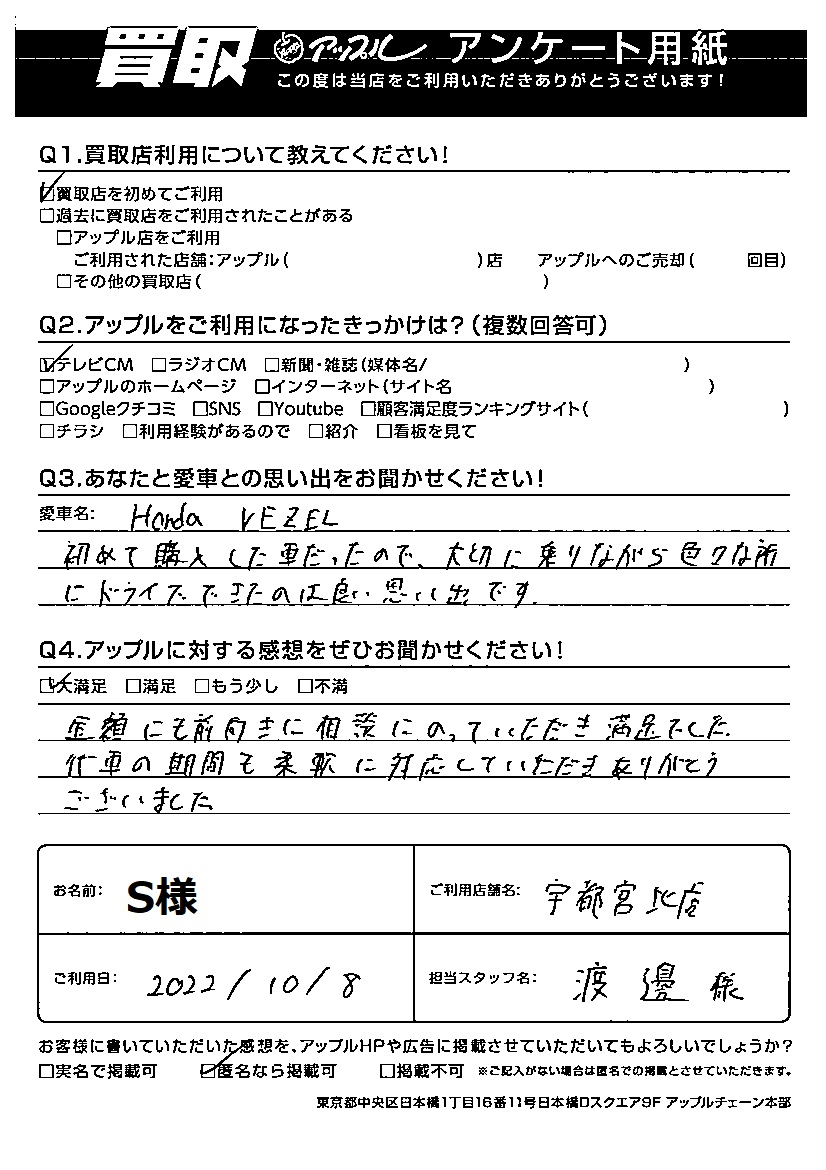 買取 アップル アンケート用紙
この度は当店をご利用いただきありがとうございます!
Q1.買取店利用について教えてください!
☑買取店を初めてご利用
□過去に買取店をご利用されたことがある
□アップル店をご利用
ご利用された店舗:アップル( )店 アップルへのご売却( 回目)
□その他の買取店( )
Q2.アップルをご利用になったきっかけは?(複数回答可)
☑テレビCM □ラジオCM □新聞・雑誌(媒体名/ )
□アップルのホームページ □インターネット(サイト名 )
□Googleクチコミ □SNS □Youtube □顧客満足度ランキングサイト( )
□チラシ □利用経験があるので □紹介 □看板を見て
Q3.あなたと愛車との思い出をお聞かせください!
愛車名: Honda VEZEL
初めて購入した車だったので、大切に乗りながら色々な所
にドライブできたのは良い思い出です.
Q4.アップルに対する感想をぜひお聞かせください!
☑大満足 □満足 □もう少し □不満
金額にも前向きに相談にのっていただき満足でした.
代車の期間も柔軟に対応していただきありがとう
ございました
お名前: S様 ご利用店舗名: 宇都宮北店
ご利用日: 2022/10/8 担当スタッフ名: 渡邊様
お客様に書いていただいた感想を、アップルHPや広告に掲載させていただいてもよろしいでしょうか?
□実名で掲載可 ☑匿名なら掲載可 □掲載不可 ※ご記入がない場合は匿名での掲載とさせていただきます。
東京都中央区日本橋1丁目16番11号日本橋Dスクエア9F アップルチェーン本部